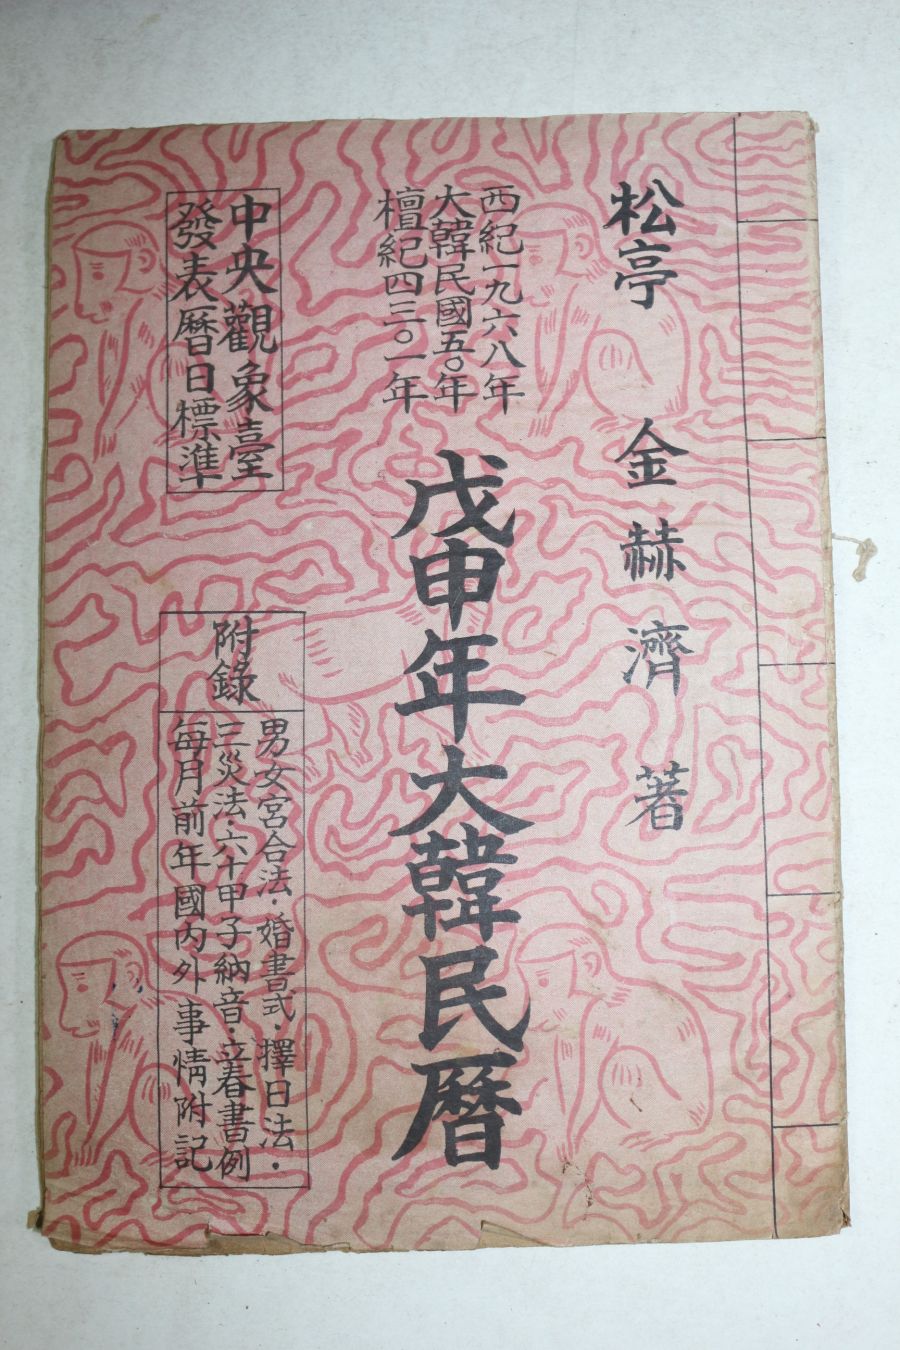 松亭 金赫濟 著
西紀一九六八年
大韓民國五〇年
檀紀四三〇一年
戊申年大韓民曆
中央觀象臺
發表曆日標準
附錄
男女宮合法·婚書式·擇日法·
三災法六十甲子納音·立春書例
每月前年國內外事情附記